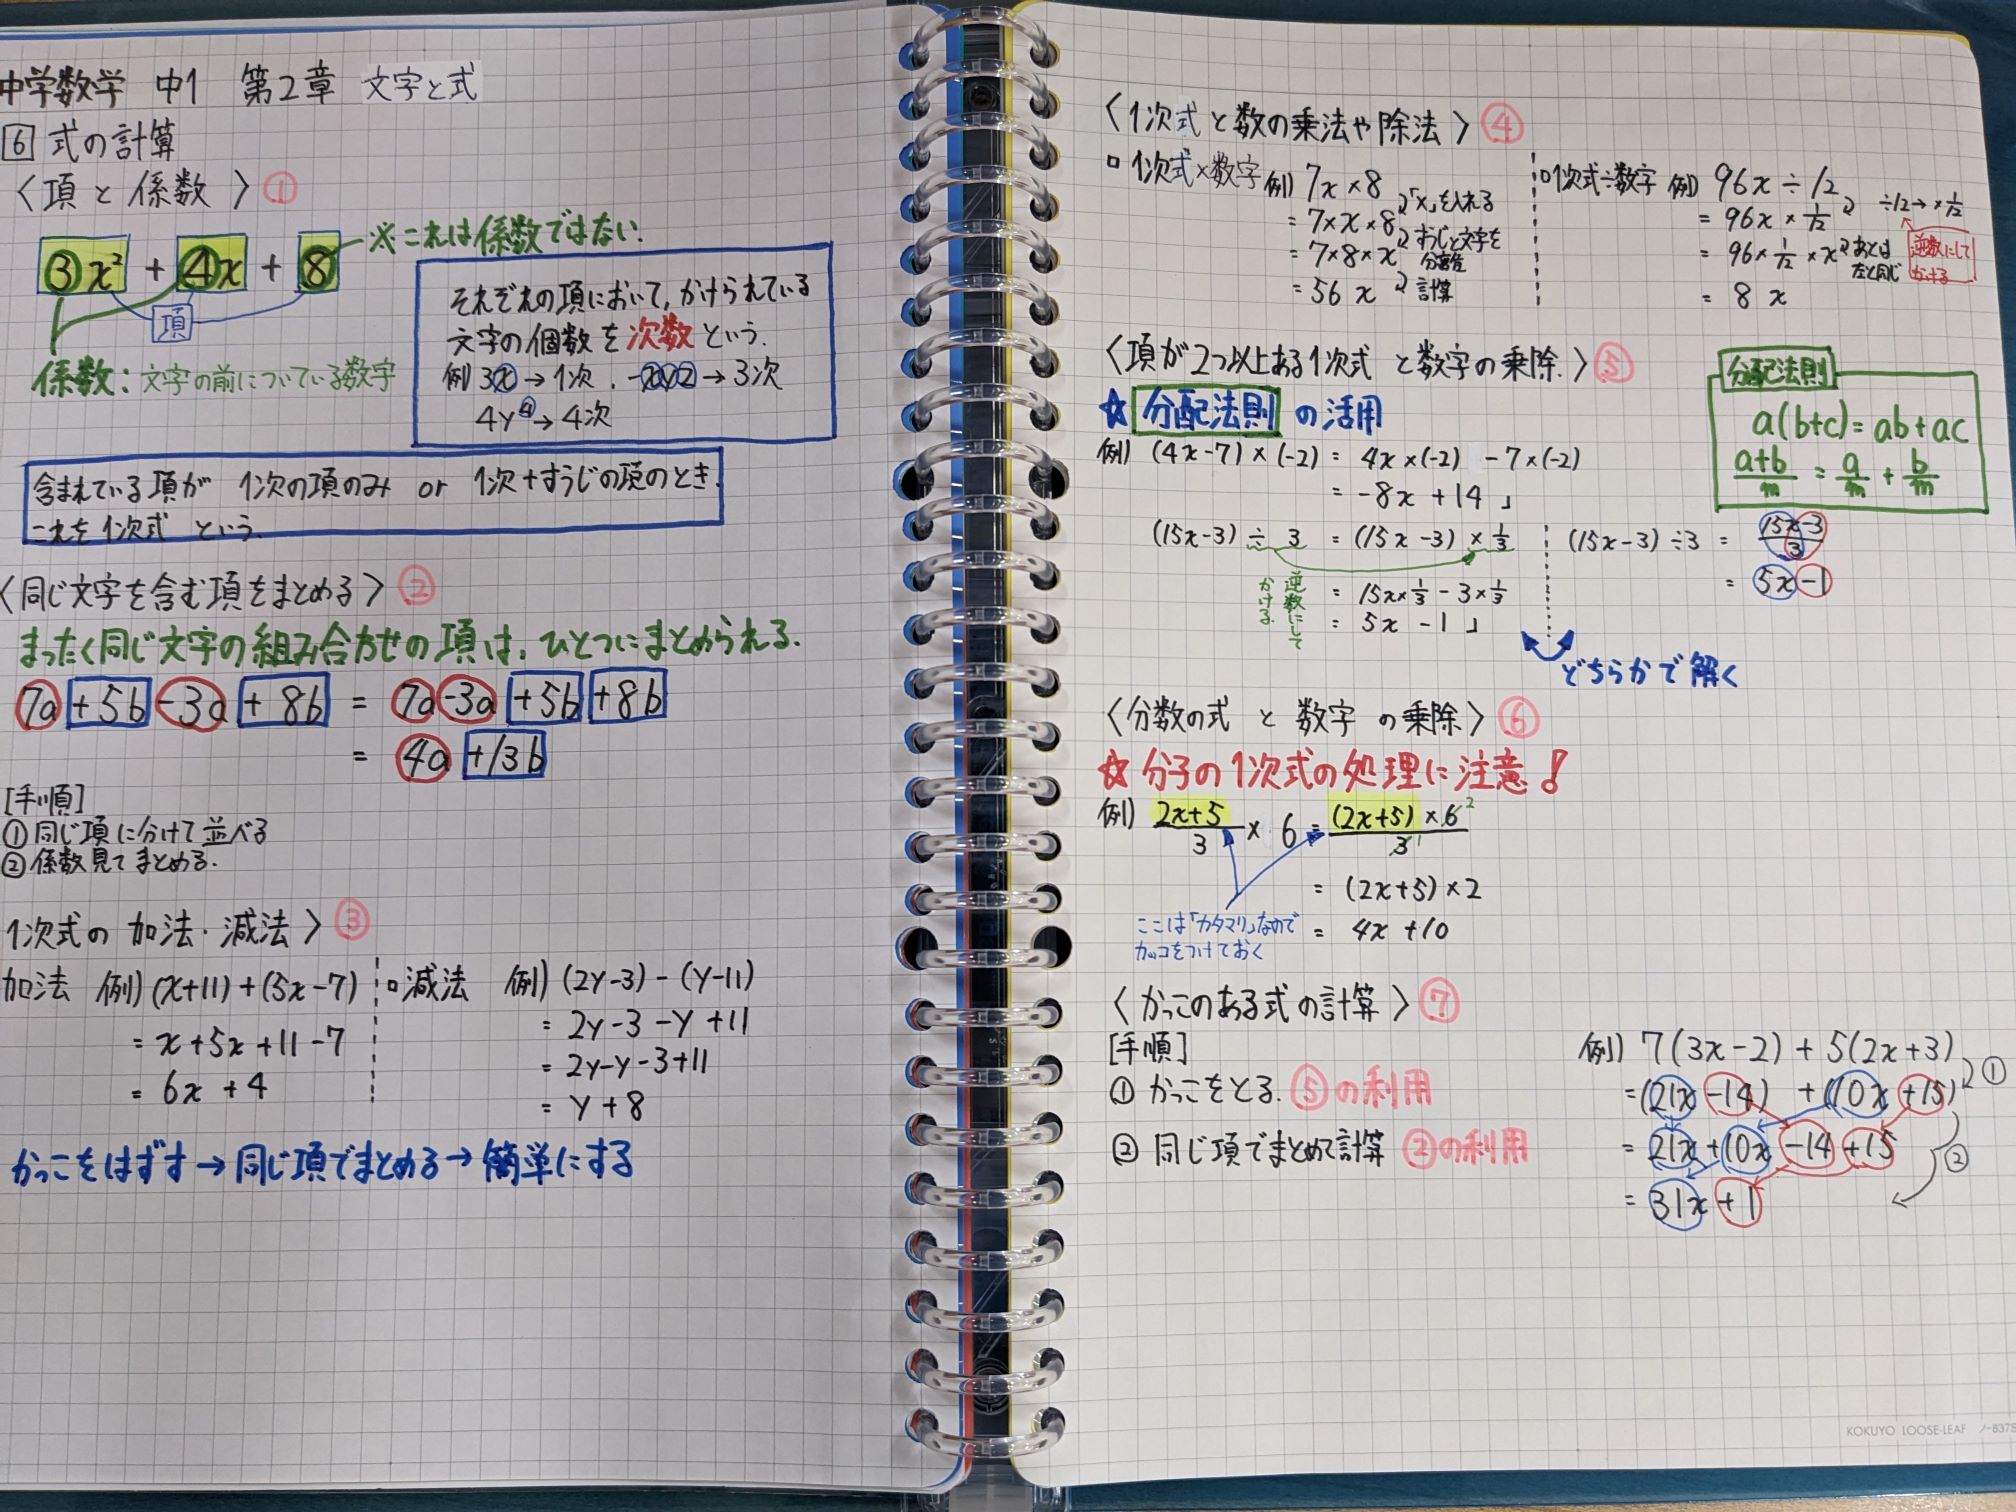 中学数学 中1 第2章 文字と式
6 式の計算
〈項と係数〉①
3x² + 4x + 8 ※これは係数ではない.
項
係数：文字の前についている数字
それぞれの項において,かけられている
文字の個数を次数という.
例) 3x → 1次 , -xyz → 3次
4y⁴ → 4次
含まれている項が 1次の項のみ or 1次+すうじの項のとき.
これを1次式 という.
〈同じ文字を含む項をまとめる〉②
まったく同じ文字の組み合わせの項は,ひとつにまとめられる.
7a +5b -3a +8b = 7a -3a +5b +8b
= 4a +13b
[手順]
① 同じ項に分けて並べる
② 係数見てまとめる.
1次式の 加法・減法〉③
加法 例) (x+11)+(5x-7)
= x+5x+11-7
= 6x +4
□減法 例) (2y-3)-(y-11)
= 2y-3-y+11
= 2y-y-3+11
= y+8
かっこをはずす→同じ項でまとめる→簡単にする
〈1次式と数の乗法や除法〉④
□ 1次式×数字 例) 7x×8
= 7×x×8 「×」を入れる
= 7×8×x すうじと文字を
分ける
= 56x 計算
□1次式÷数字 例) 96x÷12
= 96x×1/12 ÷12→×1/12
= 96×1/12×x あとは
左と同じ
逆数にして
かける
= 8x
〈項が2つ以上ある1次式 と数字の乗除.〉⑤
☆分配法則 の活用
分配法則
a(b+c)=ab+ac
(a+b)/m = a/m + b/m
例) (4x-7)×(-2) = 4x×(-2) -7×(-2)
= -8x+14 」
(15x-3)÷3 = (15x-3)×1/3
逆数にして
かける.
= 15x×1/3 - 3×1/3
= 5x-1 」
(15x-3)÷3 = (15x-3)/3
= 5x-1
どちらかで解く
〈分数の式 と 数字 の乗除〉⑥
☆分子の1次式の処理に注意!
例) (2x+5)/3 × 6 = (2x+5)×6²/3¹
= (2x+5)×2
ここは「カタマリ」なので
カッコをつけておく
= 4x+10
〈かっこのある式の計算〉⑦
[手順]
① かっこをとる. ⑤の利用
② 同じ項でまとめて計算 ②の利用
例) 7(3x-2)+5(2x+3)
=(21x-14) +(10x+15) ①
= 21x+10x-14+15 ②
= 31x+1
KOKUYO LOOSE-LEAF ノ-837S